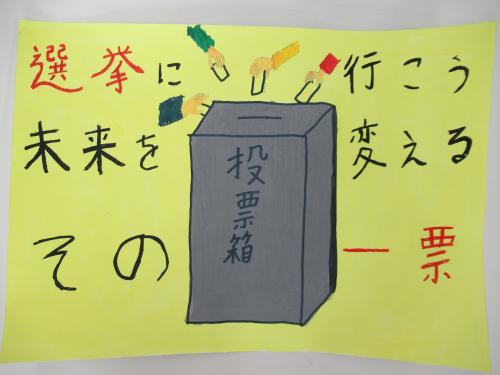 選挙に行こう
未来を変える
その一票
投票箱